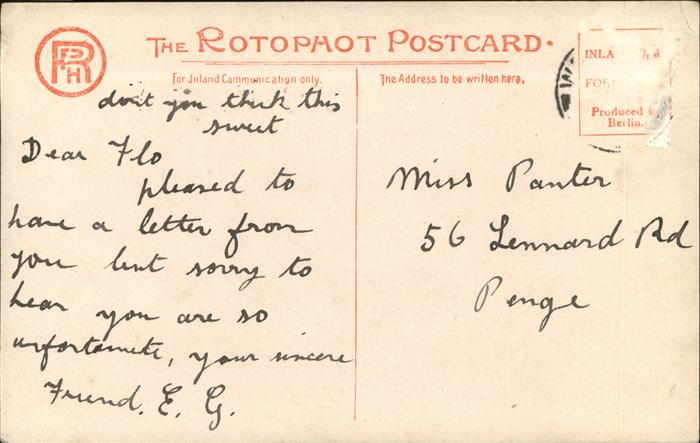 THE ROTOPHOT POSTCARD.
For Inland Communication only.
The Address to be written here.
INLA
FOR
Produced
Berlin.
don't you think this
sweet
Dear Flo
pleased to
have a letter from
you but sorry to
hear you are so
unfortunate, your sincere
Friend. E. G.
Miss Panter
56 Lennard Rd
Penge